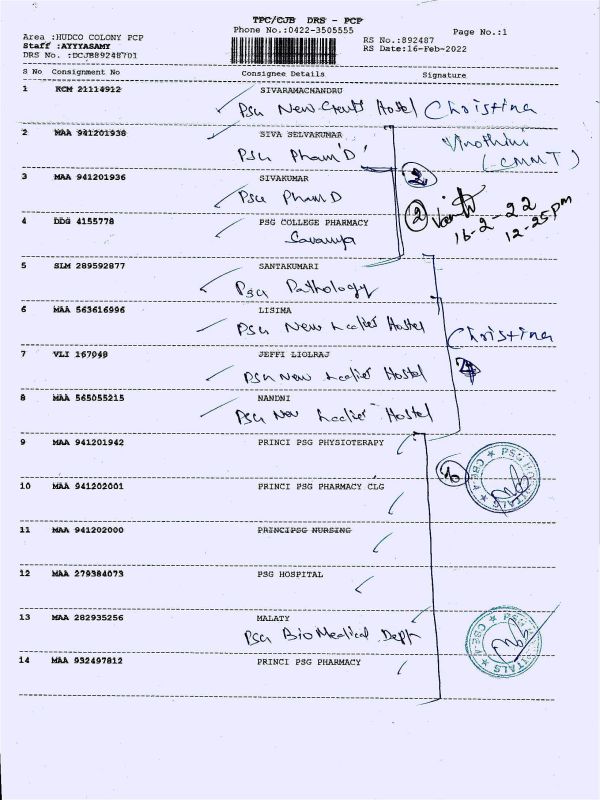 TPC/CJB DRS - PCP
Phone No.:0422-3505555
Page No.:1
Area :HUDCO COLONY PCP
Staff :AYYYASAMY
DRS No. :DCJB89248701
RS No.:892487
RS Date:16-Feb-2022
S No Consignment No Consignee Details Signature
1 KCM 21114912 SIVARAMACHANDRU
Psg New Gents Hostel Christina
2 MAA 941201938 SIVA SELVAKUMAR
Psg Pham'D' Vinothini
(-CMMT)
3 MAA 941201936 SIVAKUMAR
Psg Pham D
4 DDG 4155778 PSG COLLEGE PHARMACY
Saranya
2
16-2-22
12-25pm
5 SLM 289592877 SANTAKUMARI
Psg Pathology
6 MAA 563616996 LISIMA
Psg New Ladies Hostel Christina
7 VLI 167048 JEFFI LIOLRAJ
Psg New Ladies Hostel
8 MAA 565055215 NANDNI
Psg New Ladies Hostel
9 MAA 941201942 PRINCI PSG PHYSIOTERAPY
10
10 MAA 941202001 PRINCI PSG PHARMACY CLG
11 MAA 941202000 PRINCIPSG NURSING
12 MAA 279384073 PSG HOSPITAL
13 MAA 282935256 MALATY
Psg BioMedical Dept
14 MAA 932497812 PRINCI PSG PHARMACY
PSG HOSPITALS